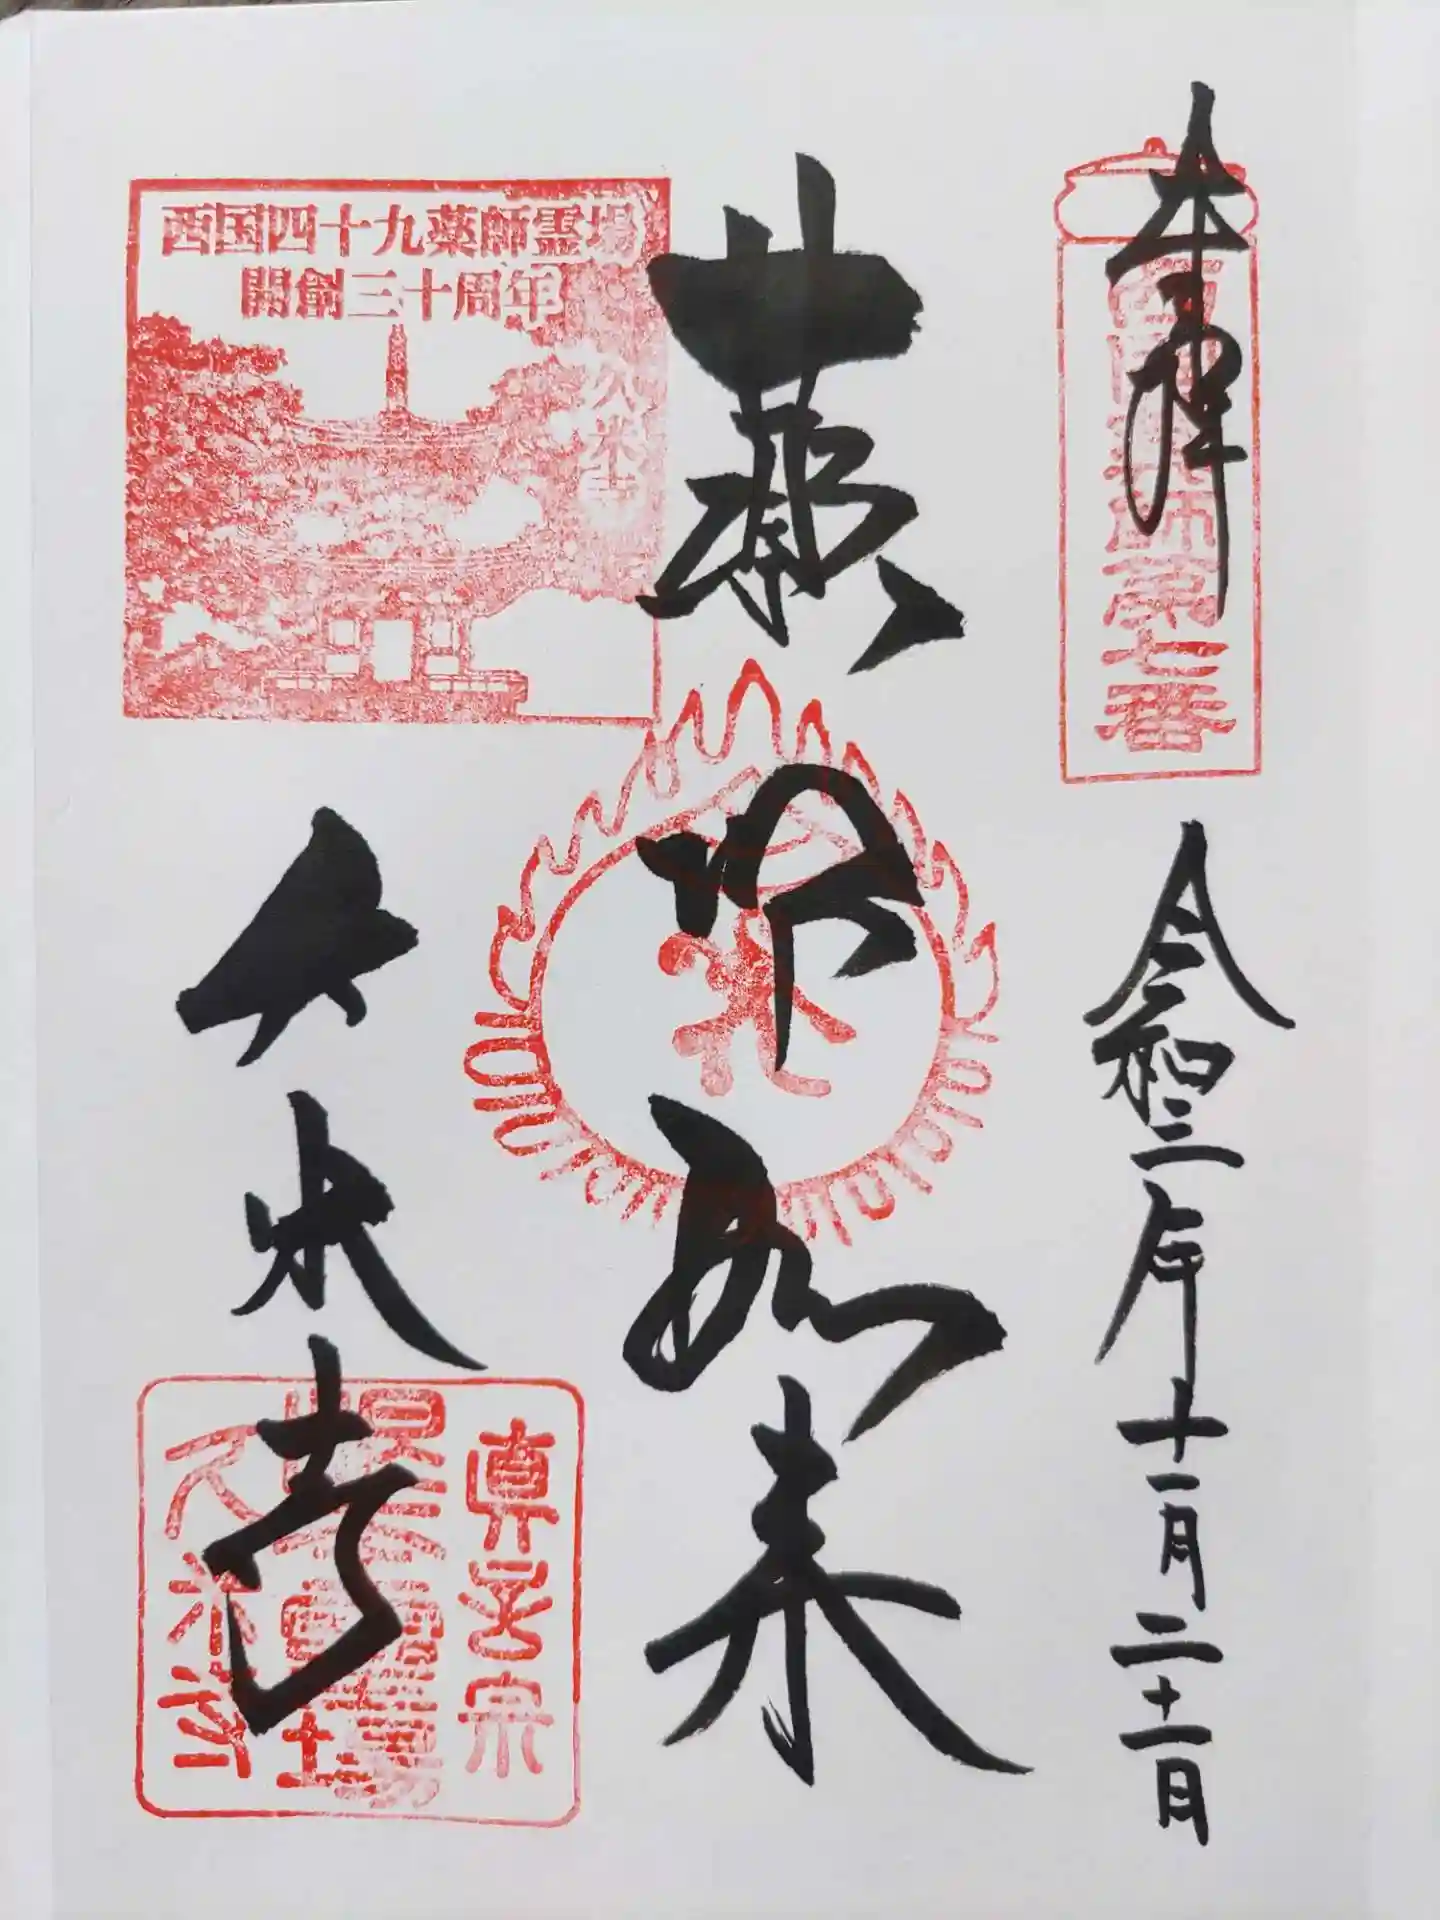 奉拝
西国薬師第七番
令和三年十一月二十一日
薬師如来
西国四十九薬師霊場
開創三十周年
久米寺
久米寺
真言宗
久米寺